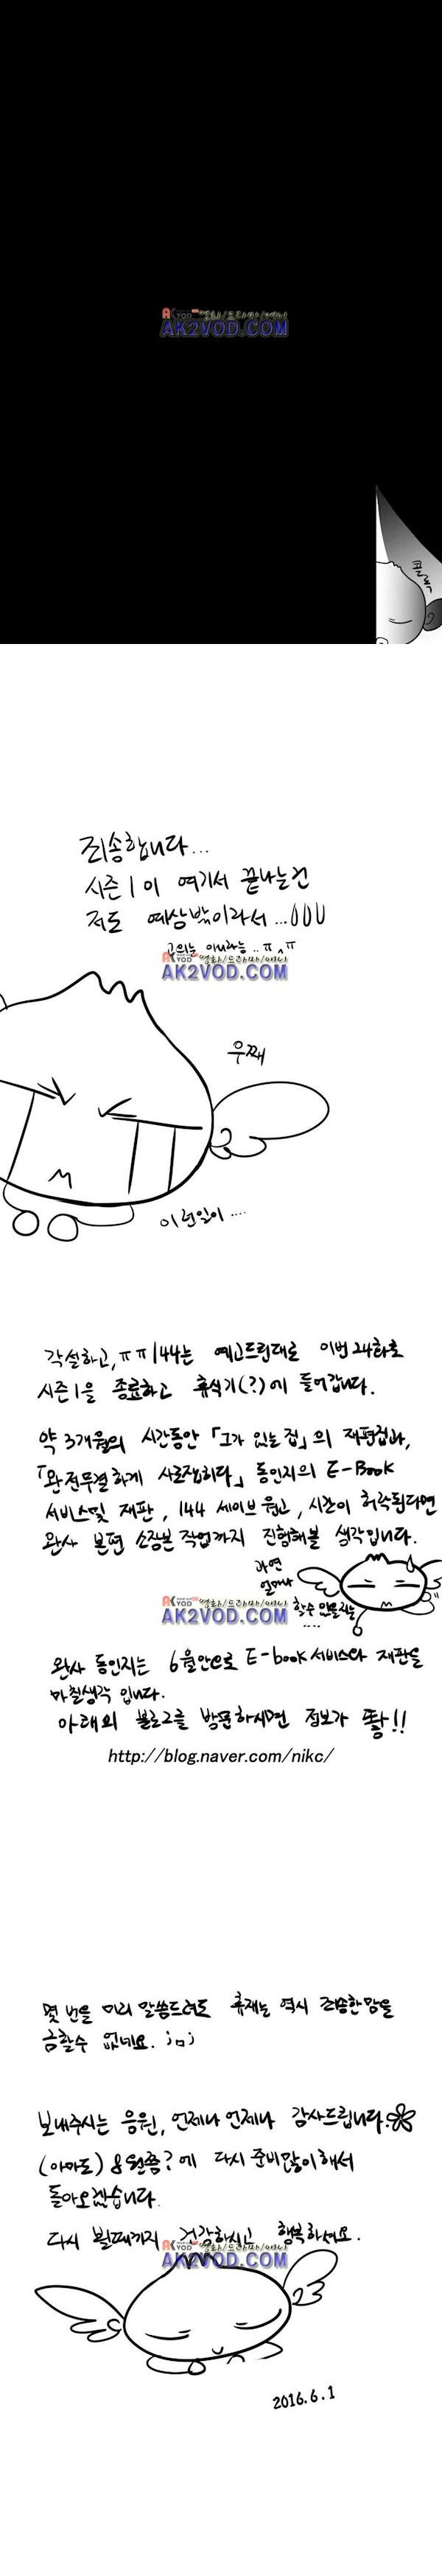 AK VOD 영화/드라마/애니
AK2VOD.COM
죄송합니다...
시즌1이 여기서 끝나는건
저도 예상밖이라서...
고의는 아니라능..ㅠ^ㅠ
AK VOD 영화/드라마/애니
AK2VOD.COM
우째
이런일이....
각설하고,ㅠㅠ 144는 예고드린대로 이번 24화로
시즌1을 종료하고 휴식기(?)에 들어갑니다.
약 3개월의 시간동안 「그가 있는 집」의 재편집과,
「완전무결하게 사로잡히다」 동인지의 E-Book
서비스및 재판, 144 세이브 원고, 시간이 허락된다면
완사 본편 소장본 작업까지 진행해볼 생각입니다.
과연
얼마나
할수 있을지는
....
AK VOD 영화/드라마/애니
AK2VOD.COM
완사 동인지는 6월안으로 E-book 서비스와 재판을
마칠생각 입니다.
아래의 블로그를 방문하시면 정보가 뙇!!
http://blog.naver.com/nikc/
몇 번을 미리 말씀드려도 휴재는 역시 죄송한맘을
금할수 없네요. ;ㅁ;
보내주시는 응원, 언제나 언제나 감사드립니다.
(아마도) 8월쯤?에 다시 준비많이해서
돌아오겠습니다.
다시 뵐때까지 건강하시고 행복하세요.
AK VOD 영화/드라마/애니
AK2VOD.COM
2016.6.1